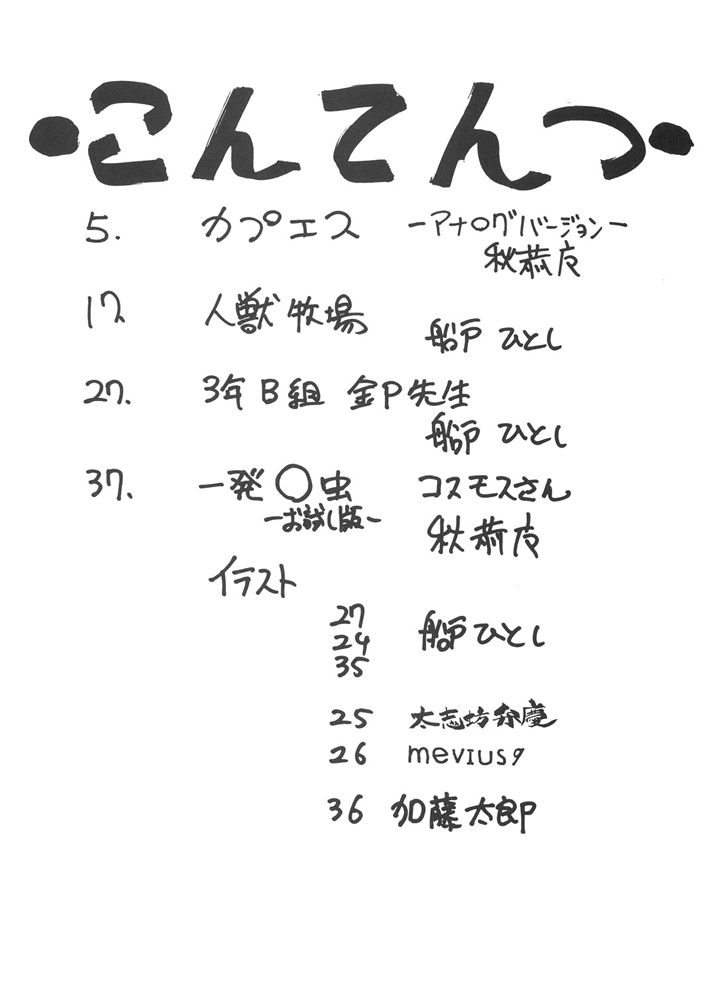 ・こんてんつ・
5. カプエス －アナログバージョン－
秋恭庵
17. 人獣牧場
船戸 ひとし
27. 3年B組 金P先生
船戸 ひとし
37. 一発〇虫 コスモスさん
－お試し版－
秋恭庵
イラスト
27
24 船戸ひとし
35
25 太志坊弁慶
26 mevius9
36 加藤太郎